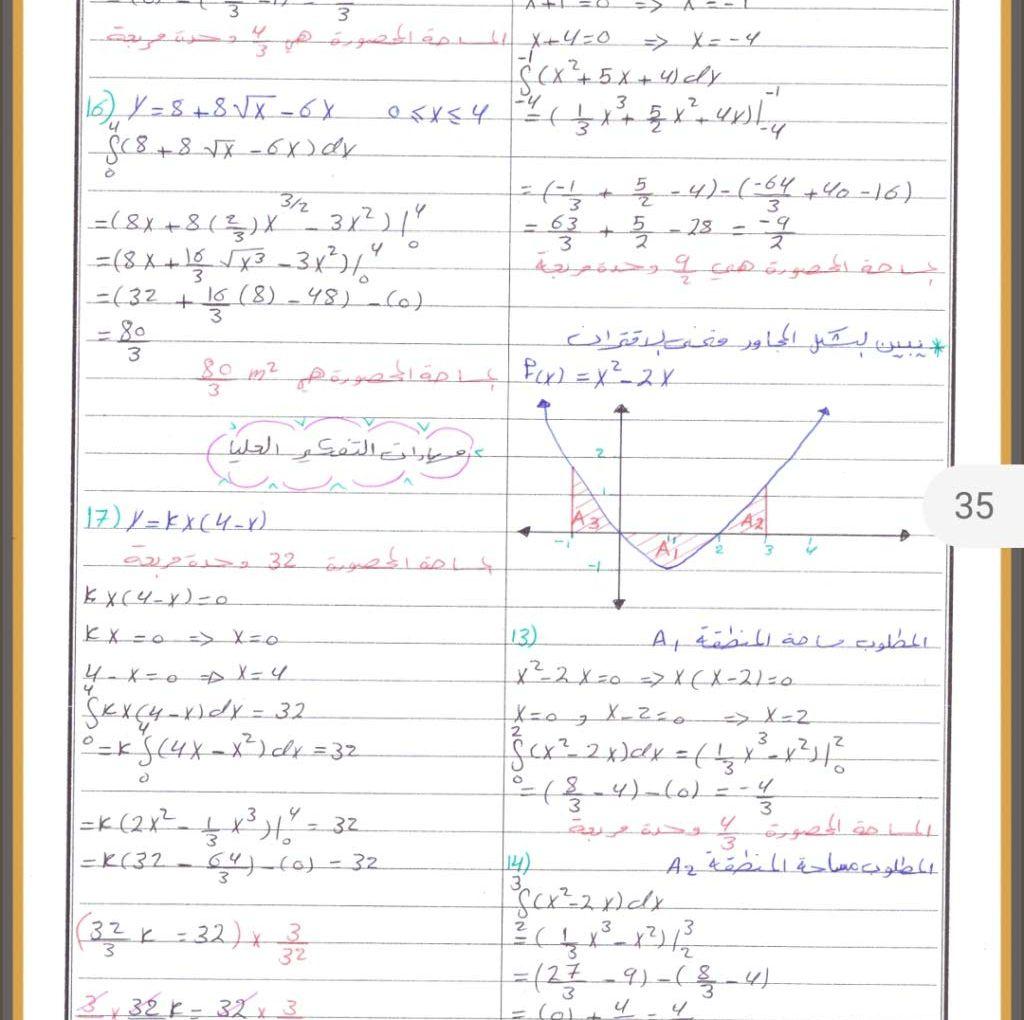 المساحة المحصورة هي 4/3 وحدة مربعة
16) y = 8 + 8√x − 6x    0 ≤ x ≤ 4
∫₀⁴ (8 + 8√x − 6x) dx
= (8x + 8(2/3)x^(3/2) − 3x²) |₀⁴
= (8x + 16/3 √x³ − 3x²) |₀⁴
= (32 + 16/3 (8) − 48) − (0)
= 80/3
المساحة المحصورة هي 80/3 m²
مهارات التفكير العليا
17) y = kx(4−x)
المساحة المحصورة 32 وحدة مربعة
kx(4−x) = 0
kx = 0 ⇒ x = 0
4 − x = 0 ⇒ x = 4
∫₀⁴ kx(4−x) dx = 32
= k ∫₀⁴ (4x − x²) dx = 32
= k(2x² − 1/3 x³) |₀⁴ = 32
= k(32 − 64/3) − (0) = 32
(32/3 k = 32) × 3/32
x+1 = 0 ⇒ x = −1
x+4 = 0 ⇒ x = −4
∫₋₄⁻¹ (x² + 5x + 4) dx
= (1/3 x³ + 5/2 x² + 4x) |₋₄⁻¹
= (−1/3 + 5/2 − 4) − (−64/3 + 40 − 16)
= 63/3 + 5/2 − 28 = −9/2
المساحة المحصورة هي 9/2 وحدة مربعة
* يبين الشكل المجاور منحنى الاقتران
f(x) = x² − 2x
2
1
A3 A1 A2
−1 1 2 3 4
−1
13) المطلوب مساحة المنطقة A₁
x² − 2x = 0 ⇒ x(x−2) = 0
x = 0 , x − 2 = 0 ⇒ x = 2
∫₀² (x² − 2x) dx = (1/3 x³ − x²) |₀²
= (8/3 − 4) − (0) = −4/3
المساحة المحصورة 4/3 وحدة مربعة
14) المطلوب مساحة المنطقة A₂
∫₂³ (x² − 2x) dx
= (1/3 x³ − x²) |₂³
= (27/3 − 9) − (8/3 − 4)
35